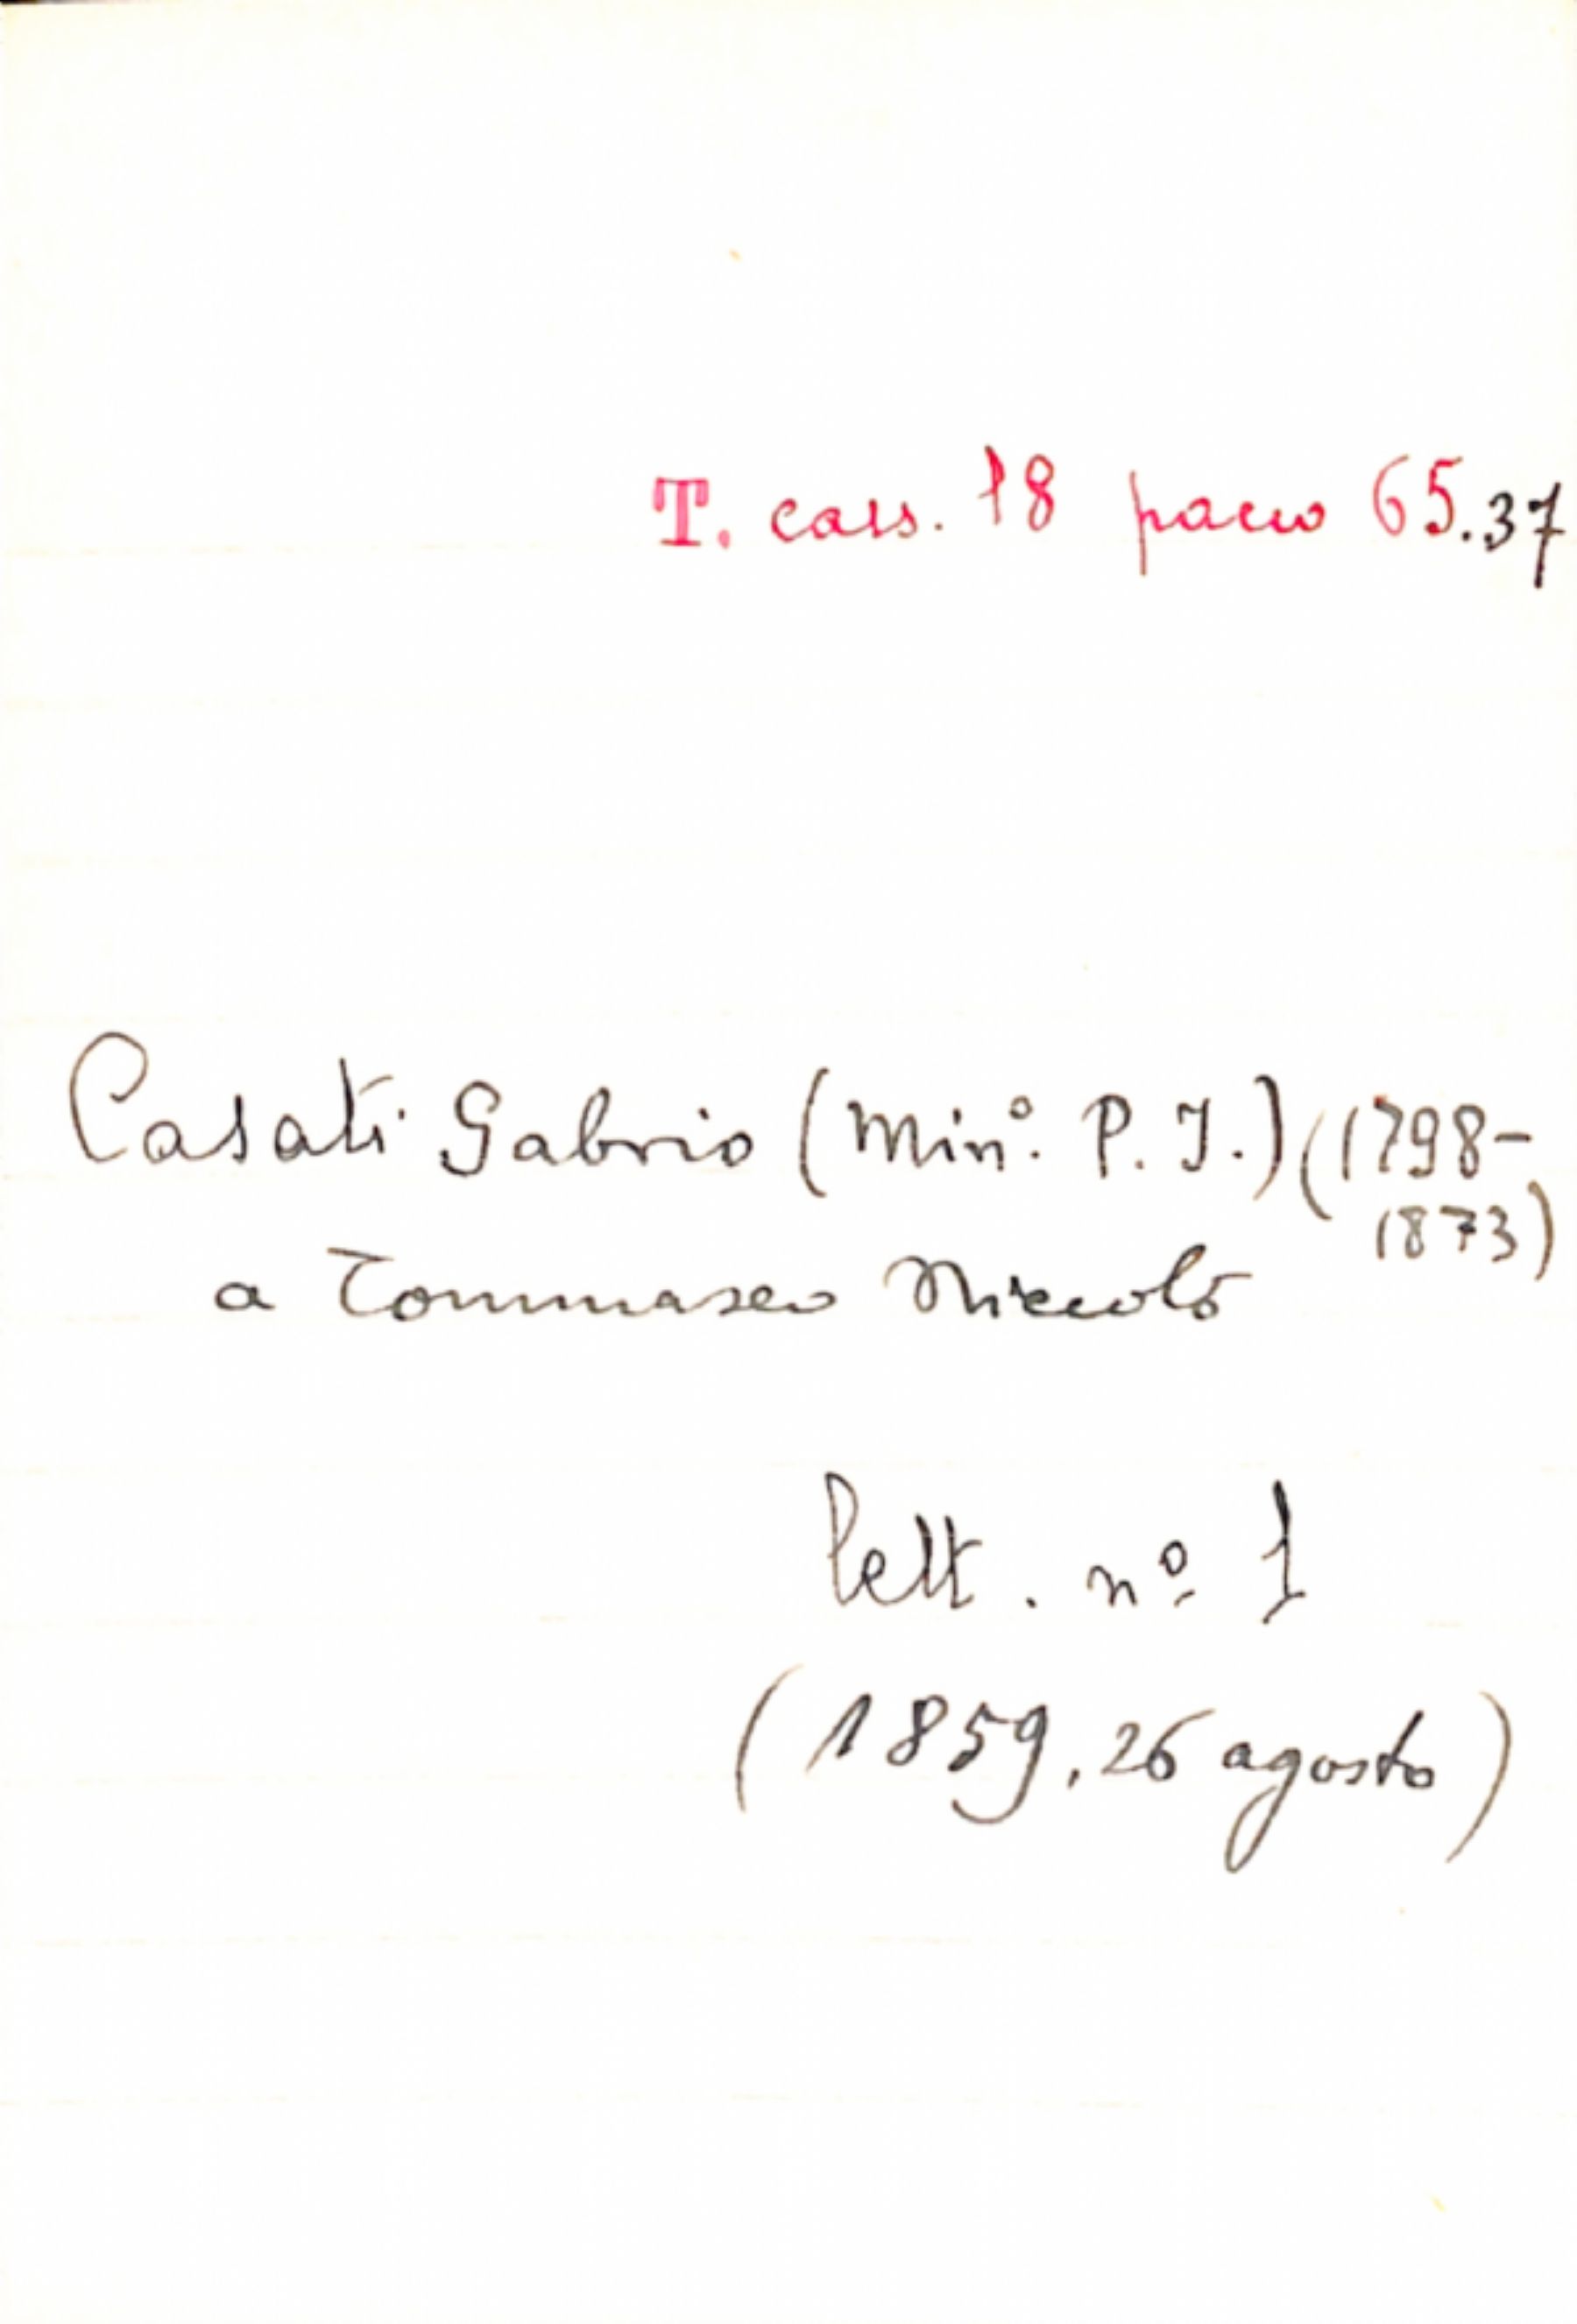 T. cass. 18 pacco 65.37
Casati Gabrio (Minº. P. I.) (1798-
1873)
a Tommaseo Niccolò
lett. nº 1
(1859, 26 agosto)